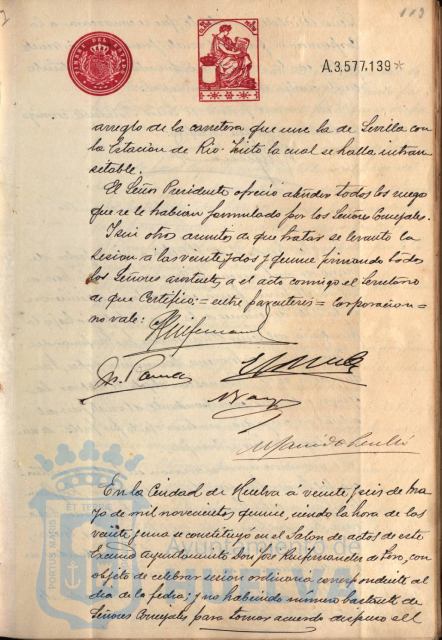 113
TIMBRE DEL ESTADO
A.3.577.139
arreglo de la carretera que une la de Sevilla con
la Estación de Rio-Tinto la cual se halla intran
sitable.
El Señor Presidente ofreció atender todos los ruegos
que se le habian formulado por los Señores Concejales.
I sin otros asuntos de que tratar se levantó la
sesion á las veinte y dos y quince firmando todos
los Señores asistentes á el acto conmigo el Secretario
de que Certifico: = entre parentesis = corporacion =
no vale:
En la Ciudad de Huelva á veinte y seis de ma
yo de mil novecientos quince, siendo la hora de las
veinte y una se constituyó en el Salon de actos de este
Excmo Ayuntamiento Don José Ruifernandez de Toro, con
objeto de celebrar sesion ordinaria correspondiente al
dia de la fecha; y no habiendo número bastante de
Señores Concejales para tomar acuerdo dispuso el
PORTUS MARIS ET TERRAE
Ayuntamiento de
HUELVA